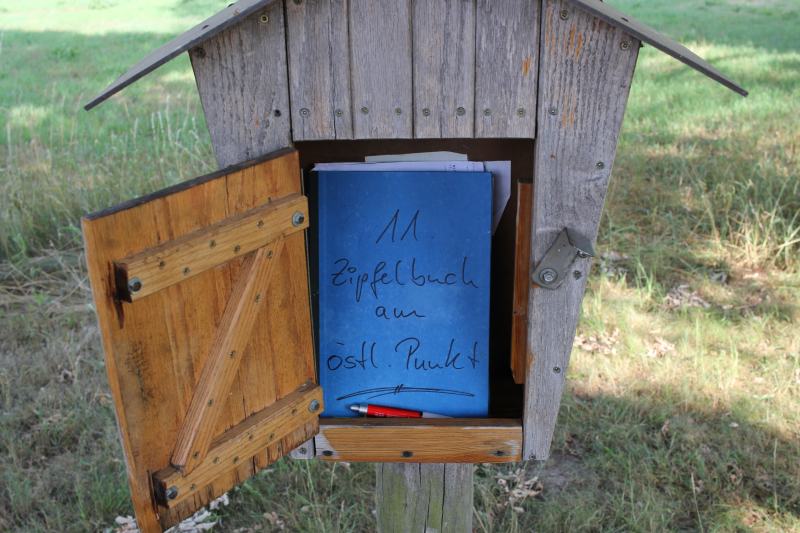 11.
Zipfelbuch
am
östl. Punkt